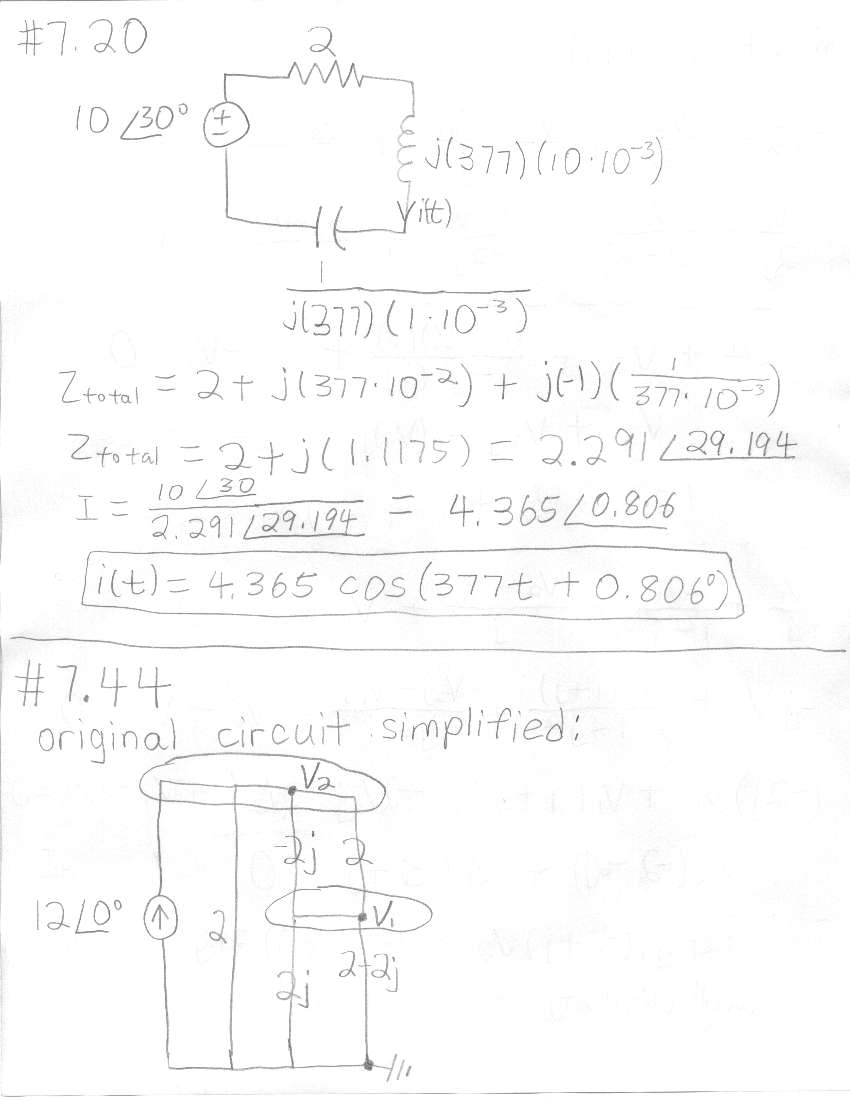 #7.20
2
10 ∠30°
j(377)(10·10⁻³)
i(t)
1
j(377)(1·10⁻³)
Z total = 2 + j(377·10⁻²) + j(-1)(1/377·10⁻³)
Z total = 2 + j(1.1175) = 2.291∠29.194
I = 10∠30/2.291∠29.194 = 4.365∠0.806
i(t) = 4.365 cos(377t + 0.806°)
#7.44
original circuit simplified:
V₂
-2j 2
12∠0° 2 V₁
2j 2-2j